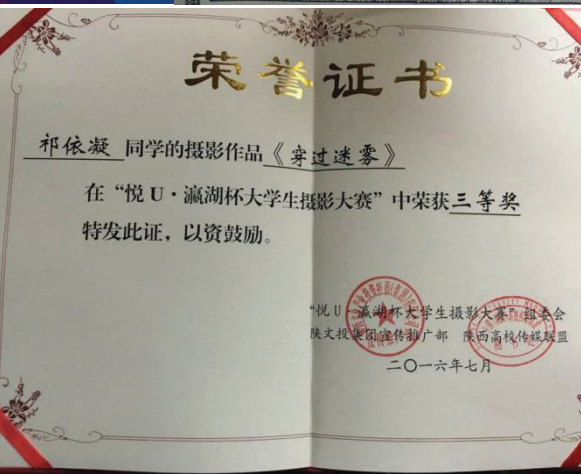 荣誉证书
祁依凝 同学的摄影作品《穿过迷雾》
在“悦U·瀛湖杯大学生摄影大赛”中荣获三等奖
特发此证，以资鼓励。
“悦U·瀛湖杯大学生摄影大赛”组委会
陕文投集团宣传推广部 陕西高校传媒联盟
二〇一六年七月